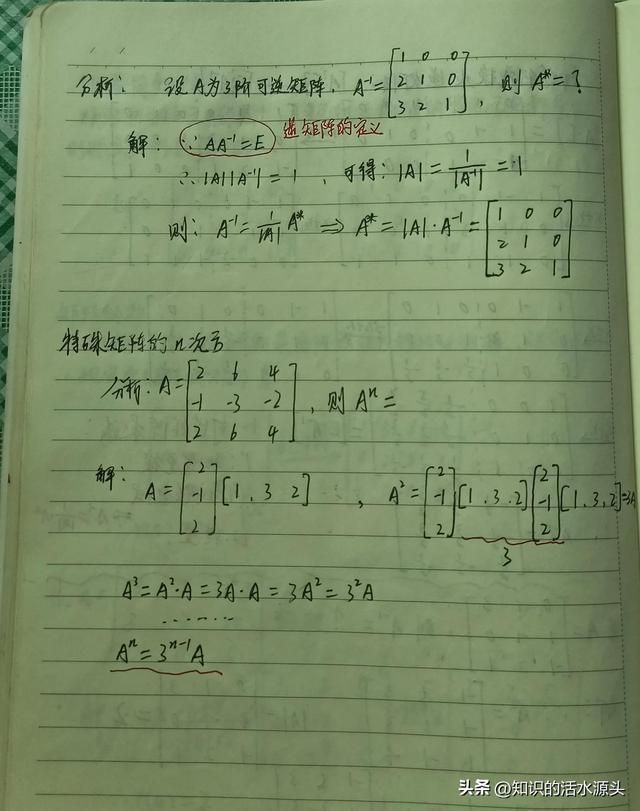 分析: 设A为3阶可逆矩阵, A⁻¹=[1 0 0; 2 1 0; 3 2 1], 则A*=?
解: ∵AA⁻¹=E 逆矩阵的定义
∴|A||A⁻¹|=1, 可得: |A|=1/|A⁻¹|=1
则: A⁻¹=1/|A| A* ⇒ A*=|A|·A⁻¹=[1 0 0; 2 1 0; 3 2 1]
特殊矩阵的n次方
分析: A=[2 6 4; -1 -3 -2; 2 6 4], 则Aⁿ=
解: A=[2; -1; 2][1, 3 2], A²=[2; -1; 2][1, 3, 2][2; -1; 2][1, 3, 2]=3A
3
A³=A²·A=3A·A=3A²=3²A
……
Aⁿ=3ⁿ⁻¹A
头条 @知识的活水源头